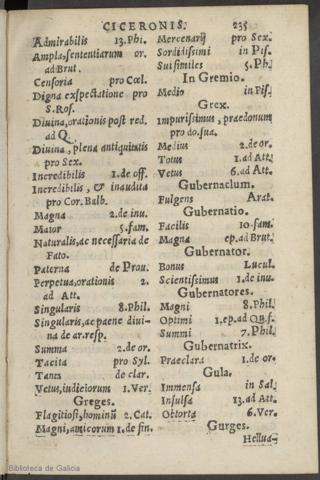 CICERONIS. 235
Admirabilis 13.Phi.
Ampla, sententiarum or.
ad Brut.
Censoria pro Cœl.
Digna exspectatione pro
S. Ros.
Diuina, orationis post red.
ad Q.
Diuina, plena antiquitatis
pro Sex.
Incredibilis 1.de off.
Incredibilis, & inaudita
pro Cor. Balb.
Magna 2.de inu.
Maior 5.fam.
Naturalis, ac necessaria de
Fato.
Paterna de Prou.
Perpetua, orationis 2.
ad Att.
Singularis 8.Phil.
Singularis, ac paene diui-
na de ar.resp.
Summa 2.de or.
Tacita pro Syl.
Tanta de clar.
Vetus, iudiciorum 1.Ver.
Greges.
Flagitiosi, hominũ 2.Cat.
Magni, amicorum 1.de fin.
Mercenarij pro Sex.
Sordidissimi in Pis.
Sui similes 5.Ph.
In Gremio.
Medio in Pis.
Grex.
Impurissimus, praedonum
pro do.sua.
Medius 2.de or.
Totus 1.ad Att.
Vetus 6.ad Att.
Gubernaclum.
Fulgens Arat.
Gubernatio.
Facilis 10.fam.
Magna ep.ad Brut.
Gubernator.
Bonus Lucul.
Scientissimus 1.de inu.
Gubernatores.
Magni 8.Phil.
Optimi 1.ep.ad Qu.f.
Summi 7.Phil.
Gubernatrix.
Praeclara 1.de or.
Gula.
Immensa in Sal.
Insulsa 13.ad Att.
Obtorta 6.Ver.
Gurges.
Hellua-
Biblioteca de Galicia